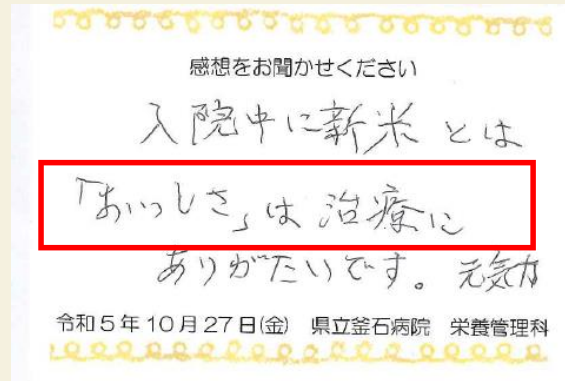 感想をお聞かせください
入院中に新米とは
「おいっしさ」は治療に
ありがたいです。元気力
令和5年10月27日(金) 県立釜石病院 栄養管理科